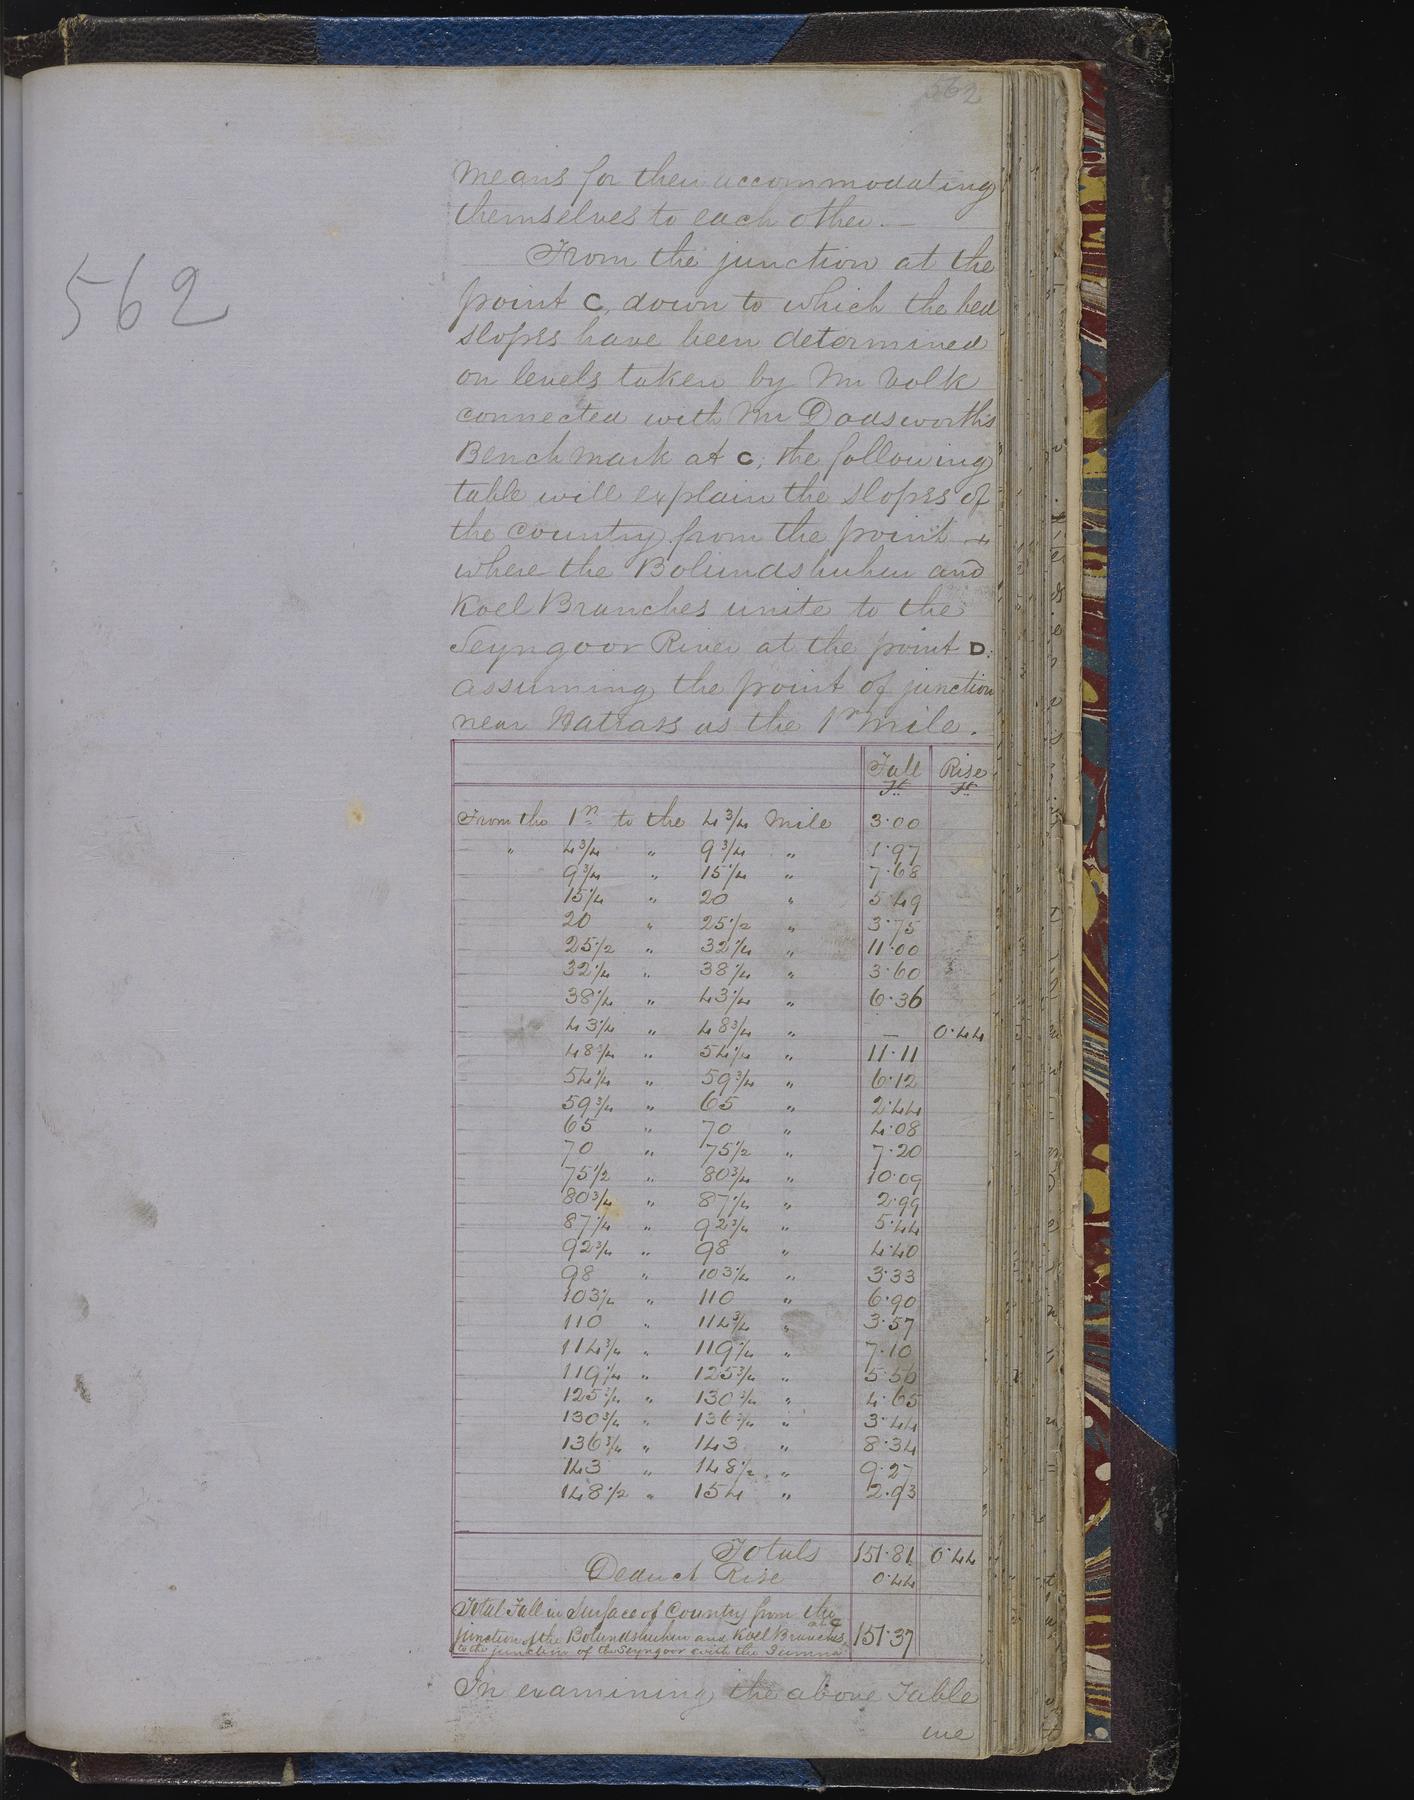 562
562
means for their accommodating
themselves to each other. —
From the junction at the
point C, down to which the bed
slopes have been determined
on levels taken by Mr Volk
connected with Mr Dodsworth's
Bench mark at C; the following
table will explain the slopes of
the country from the point
where the Bolundshuhur and
Koel Branches unite to the
Seyngoor River at the point D.
assuming the point of junction
near Hatrass as the 1st mile.
Fall Rise
Ft Ft
From the 1st to the 4 3/4 Mile 3.00
" 4 3/4 " 9 3/4 " 1.97
9 3/4 " 15 1/4 " 7.68
15 1/4 " 20 " 5.49
20 " 25 1/2 " 3.75
25 1/2 " 32 1/4 " 11.00
32 1/4 " 38 1/4 " 3.60
38 1/4 " 43 1/4 " 6.36
43 1/4 " 48 3/4 " — 0.44
48 3/4 " 54 1/4 " 11.11
54 1/4 " 59 3/4 " 6.12
59 3/4 " 65 " 2.44
65 " 70 " 4.08
70 " 75 1/2 " 7.20
75 1/2 " 80 3/4 " 10.09
80 3/4 " 87 1/4 " 2.99
87 1/4 " 92 3/4 " 5.44
92 3/4 " 98 " 4.40
98 " 103 1/4 " 3.33
103 1/4 " 110 " 6.90
110 " 114 3/4 " 3.57
114 3/4 " 119 1/4 " 7.10
119 1/4 " 125 3/4 " 5.56
125 3/4 " 130 3/4 " 4.65
130 3/4 " 136 3/4 " 3.44
136 3/4 " 143 " 8.34
143 " 148 1/2 " 9.27
148 1/2 " 154 " 2.93
Totals 151.81 0.44
Deduct Rise 0.44
Total Fall in Surface of Country from the
junction of the Bolundshuhur and Koel Branches at C 151.37
to the junction of the Seyngoor with the Jumna
In examining the above Table
we